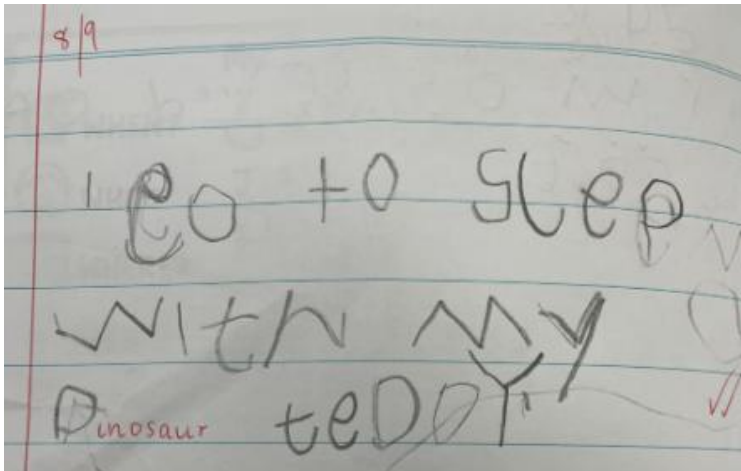 8/9
I go to slep
with my
Dinosaur teDDY.